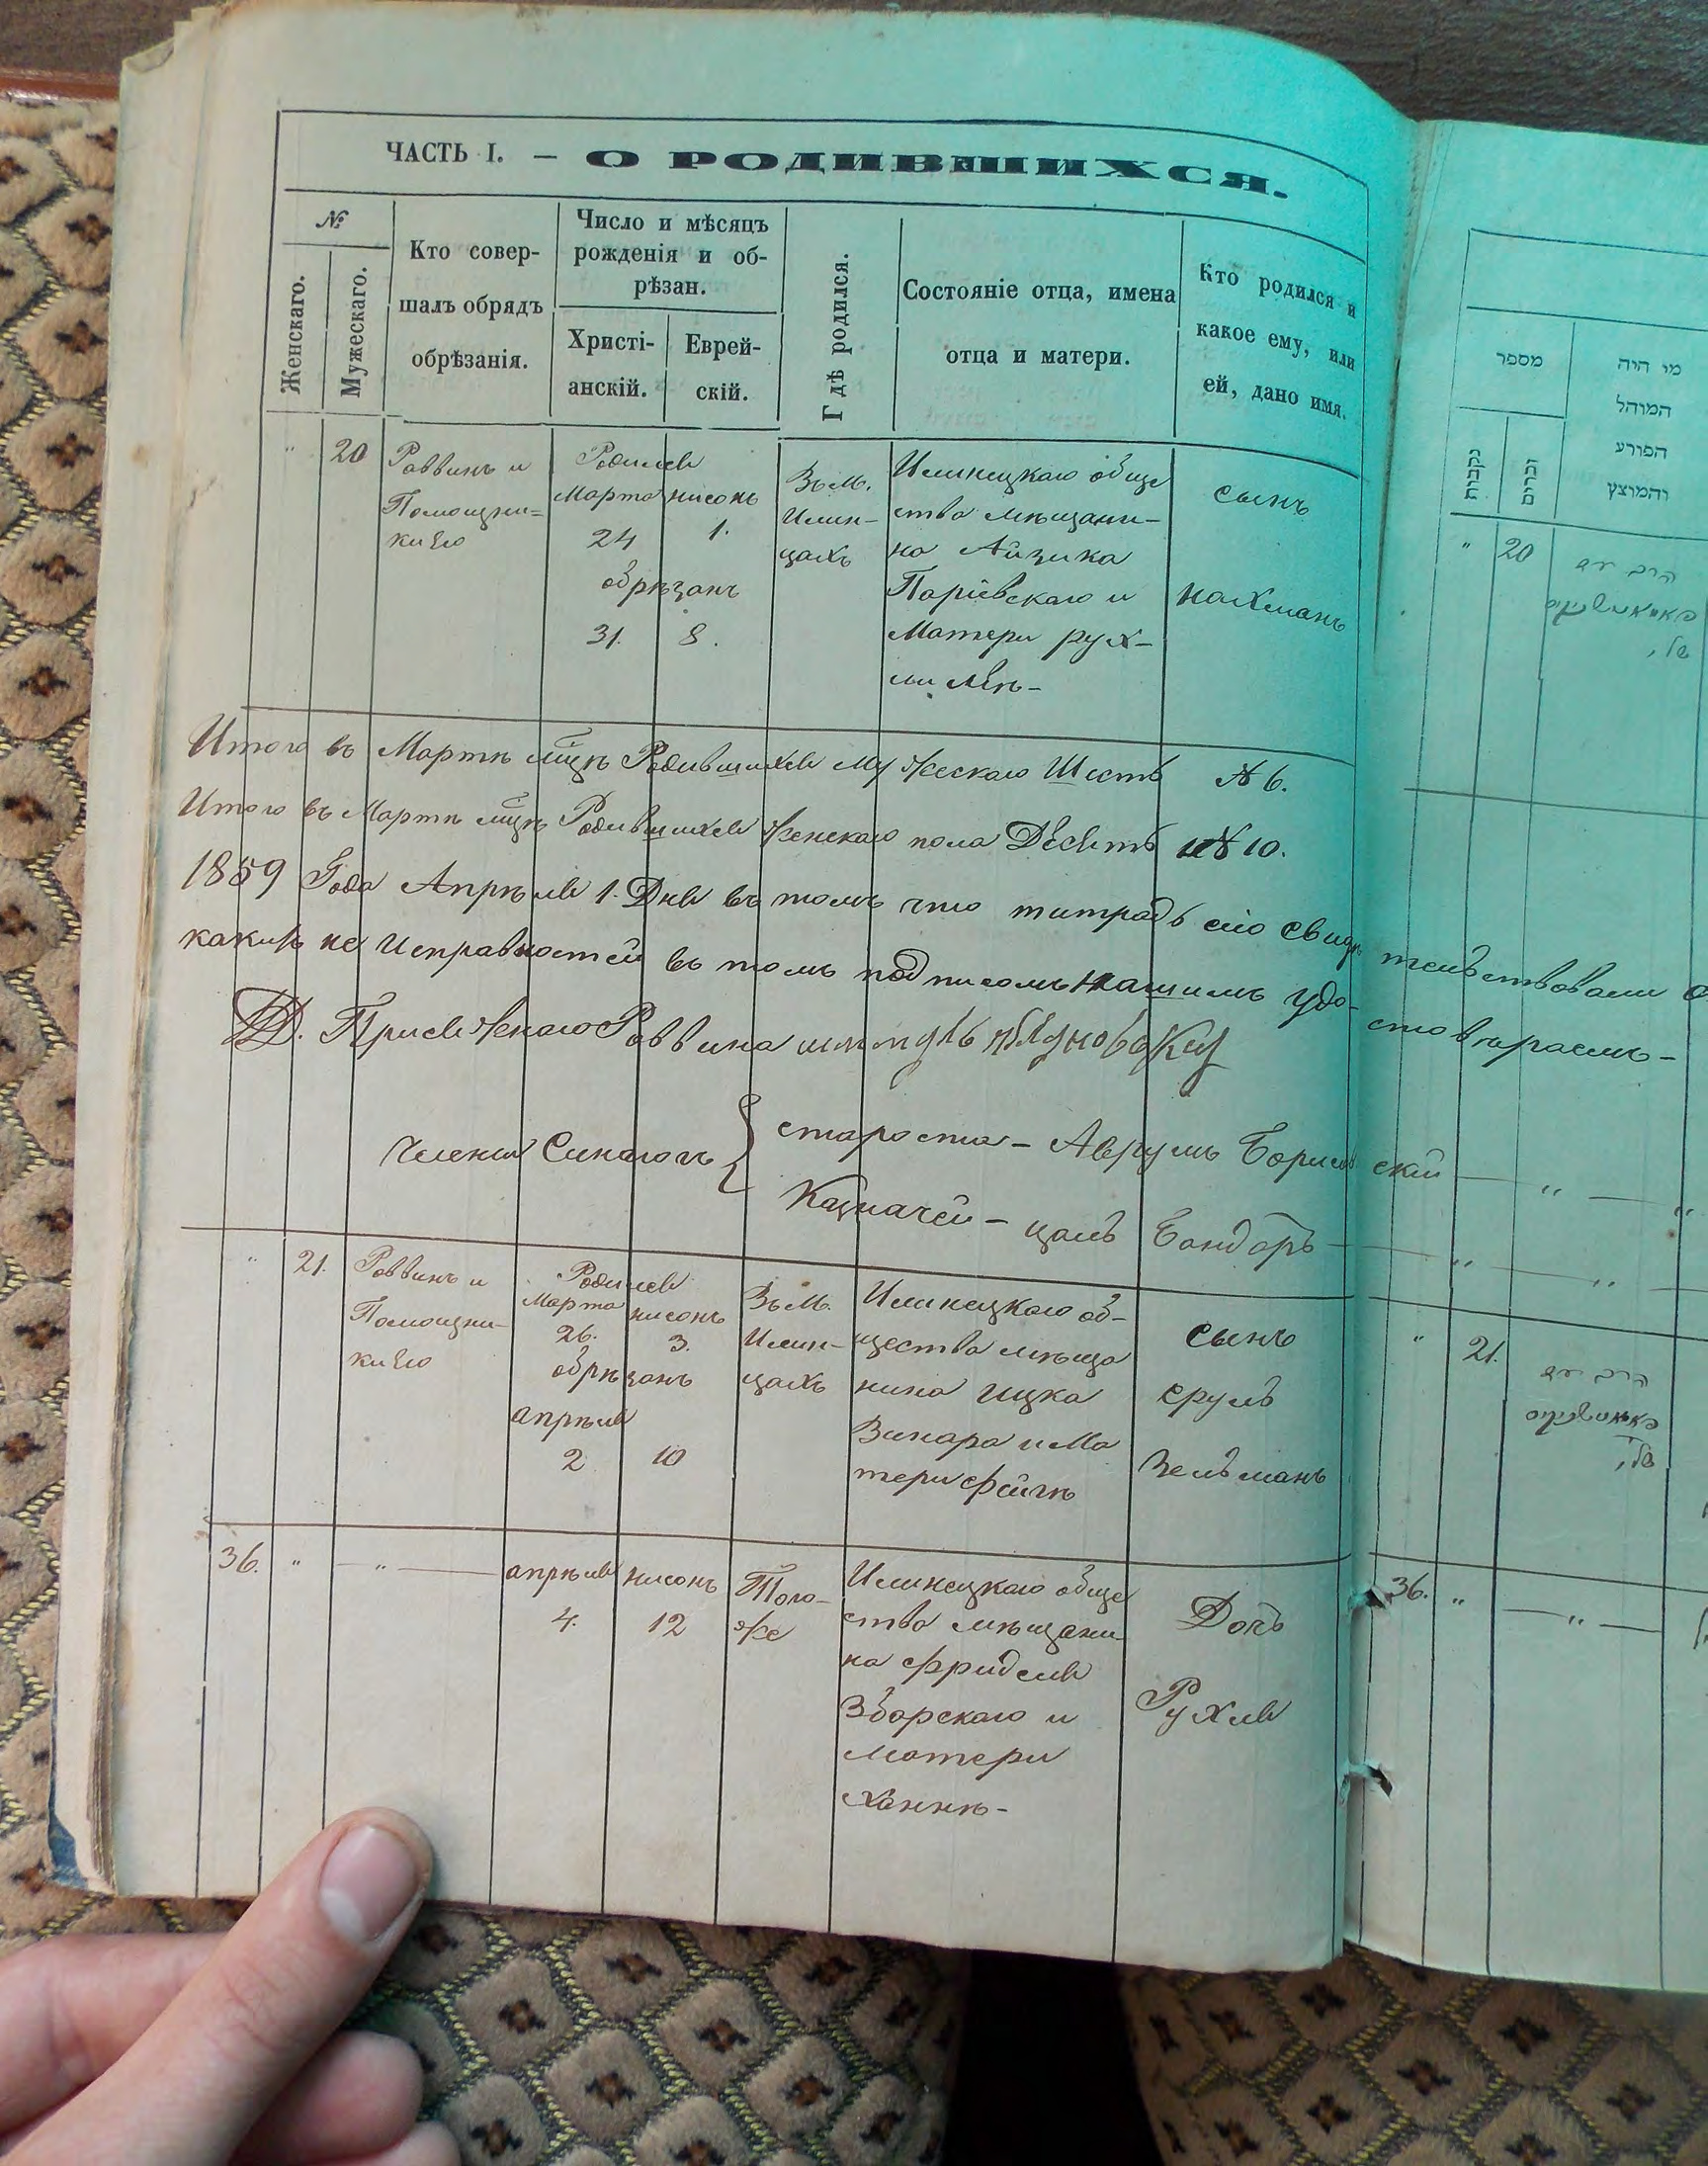 ЧАСТЬ I. — О РОДИВШИХСЯ.
№
Женскаго.
Мужескаго.
Кто совер-
шалъ обрядъ
обрѣзанія.
Число и мѣсяцъ
рожденія и об-
рѣзан.
Христі-
анскій.
Еврей-
скій.
Гдѣ родился.
Состояніе отца, имена
отца и матери.
Кто родился и
какое ему, или
ей, дано имя.
" 20
Раввинъ и
Помощни=
ки Его
Родился
Марта нисонъ
24 1.
обрѣзанъ
31. 8.
Въ М.
Илин-
цахъ
Илинецкаго обще
ства мѣщани-
на Айзика
Паріевскаго и
Матери рух-
ли
сынъ
нахманъ
Итого въ Мартѣ мцѣ Родившихся Мужескаго Шесть № 6.
Итого въ Мартѣ мцѣ Родившихся Женскаго пола Десять № 10.
1859 Года Апрѣля 1. Дня въ томъ что титрадь сію свидѣтельствовали
какихъ не исправностей въ томъ подписомъ нашимъ удо-стовѣраемъ-
Присяжнаго Раввина
члены Синагогъ
староста - Аврумъ
Казначей - цаль Бондарь
" 21.
Раввинъ и
Помощни-
ки Его
Родился
Марта нисонъ
26. 3.
обрѣзанъ
апрѣля
2 10
Въ М.
Илин-
цахъ
Илинецкаго об-
щества мѣща
нина ицка
Винара и Ма
тери фейгѣ
сынъ
сруль
Зельманъ
36. " — " —
апрѣля нисонъ
4. 12
Того-
же
Илинецкаго обще
ства мѣщани-
на фриделя
Зборскаго и
матери
ханнѣ-
Дочь
Рухля
מספר
נקבות
זכרים
מי היה
המוהל
הפורע
והמוצץ
" 20
" 21.
36. " — " —